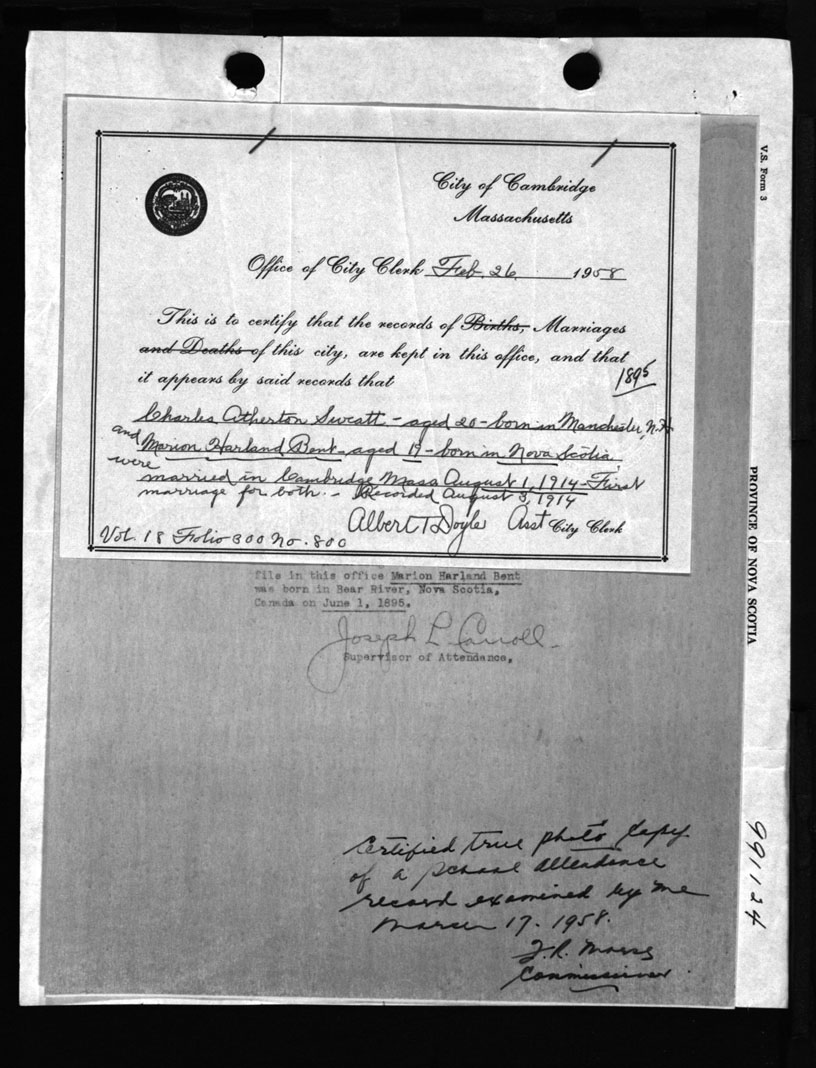 City of Cambridge
Massachusetts
Office of City Clerk Feb. 26 1958
This is to certify that the records of Births, Marriages
and Deaths of this city, are kept in this office, and that
it appears by said records that
1895
Charles Atherton Sweatt - aged 20 - born in Manchester, N.H.
and Marion Harland Bent - aged 19 - born in Nova Scotia,
were married in Cambridge Mass August 1, 1914 - First
marriage for both. - Recorded August 3, 1914
Albert T Doyle Asst City Clerk
Vol. 18 Folio 300 No. 800
file in this office Marion Harland Bent
was born in Bear River, Nova Scotia,
Canada on June 1, 1895.
Joseph L Carroll
Supervisor of Attendance.
Certified true photo copy
of a school attendance
record examined by me
March 17. 1958.
Commissioner.
V.S. Form 3
PROVINCE OF NOVA SCOTIA
991124